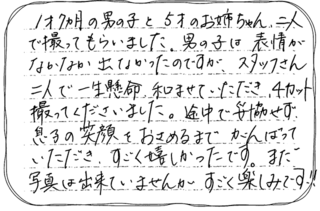 1才7カ月の男の子と5才のお姉ちゃん、二人
で撮ってもらいました。男の子は表情が
なかなか出てなかったのですが スタッフさん
二人で一生懸命 和ませていただき、4カット
撮ってくださいました。途中で妥協せず
息子の笑顔をおさめるまで がんばって
いただき、すごく嬉しかったです。まだ
写真は出来ていませんが、すごく楽しみです!!